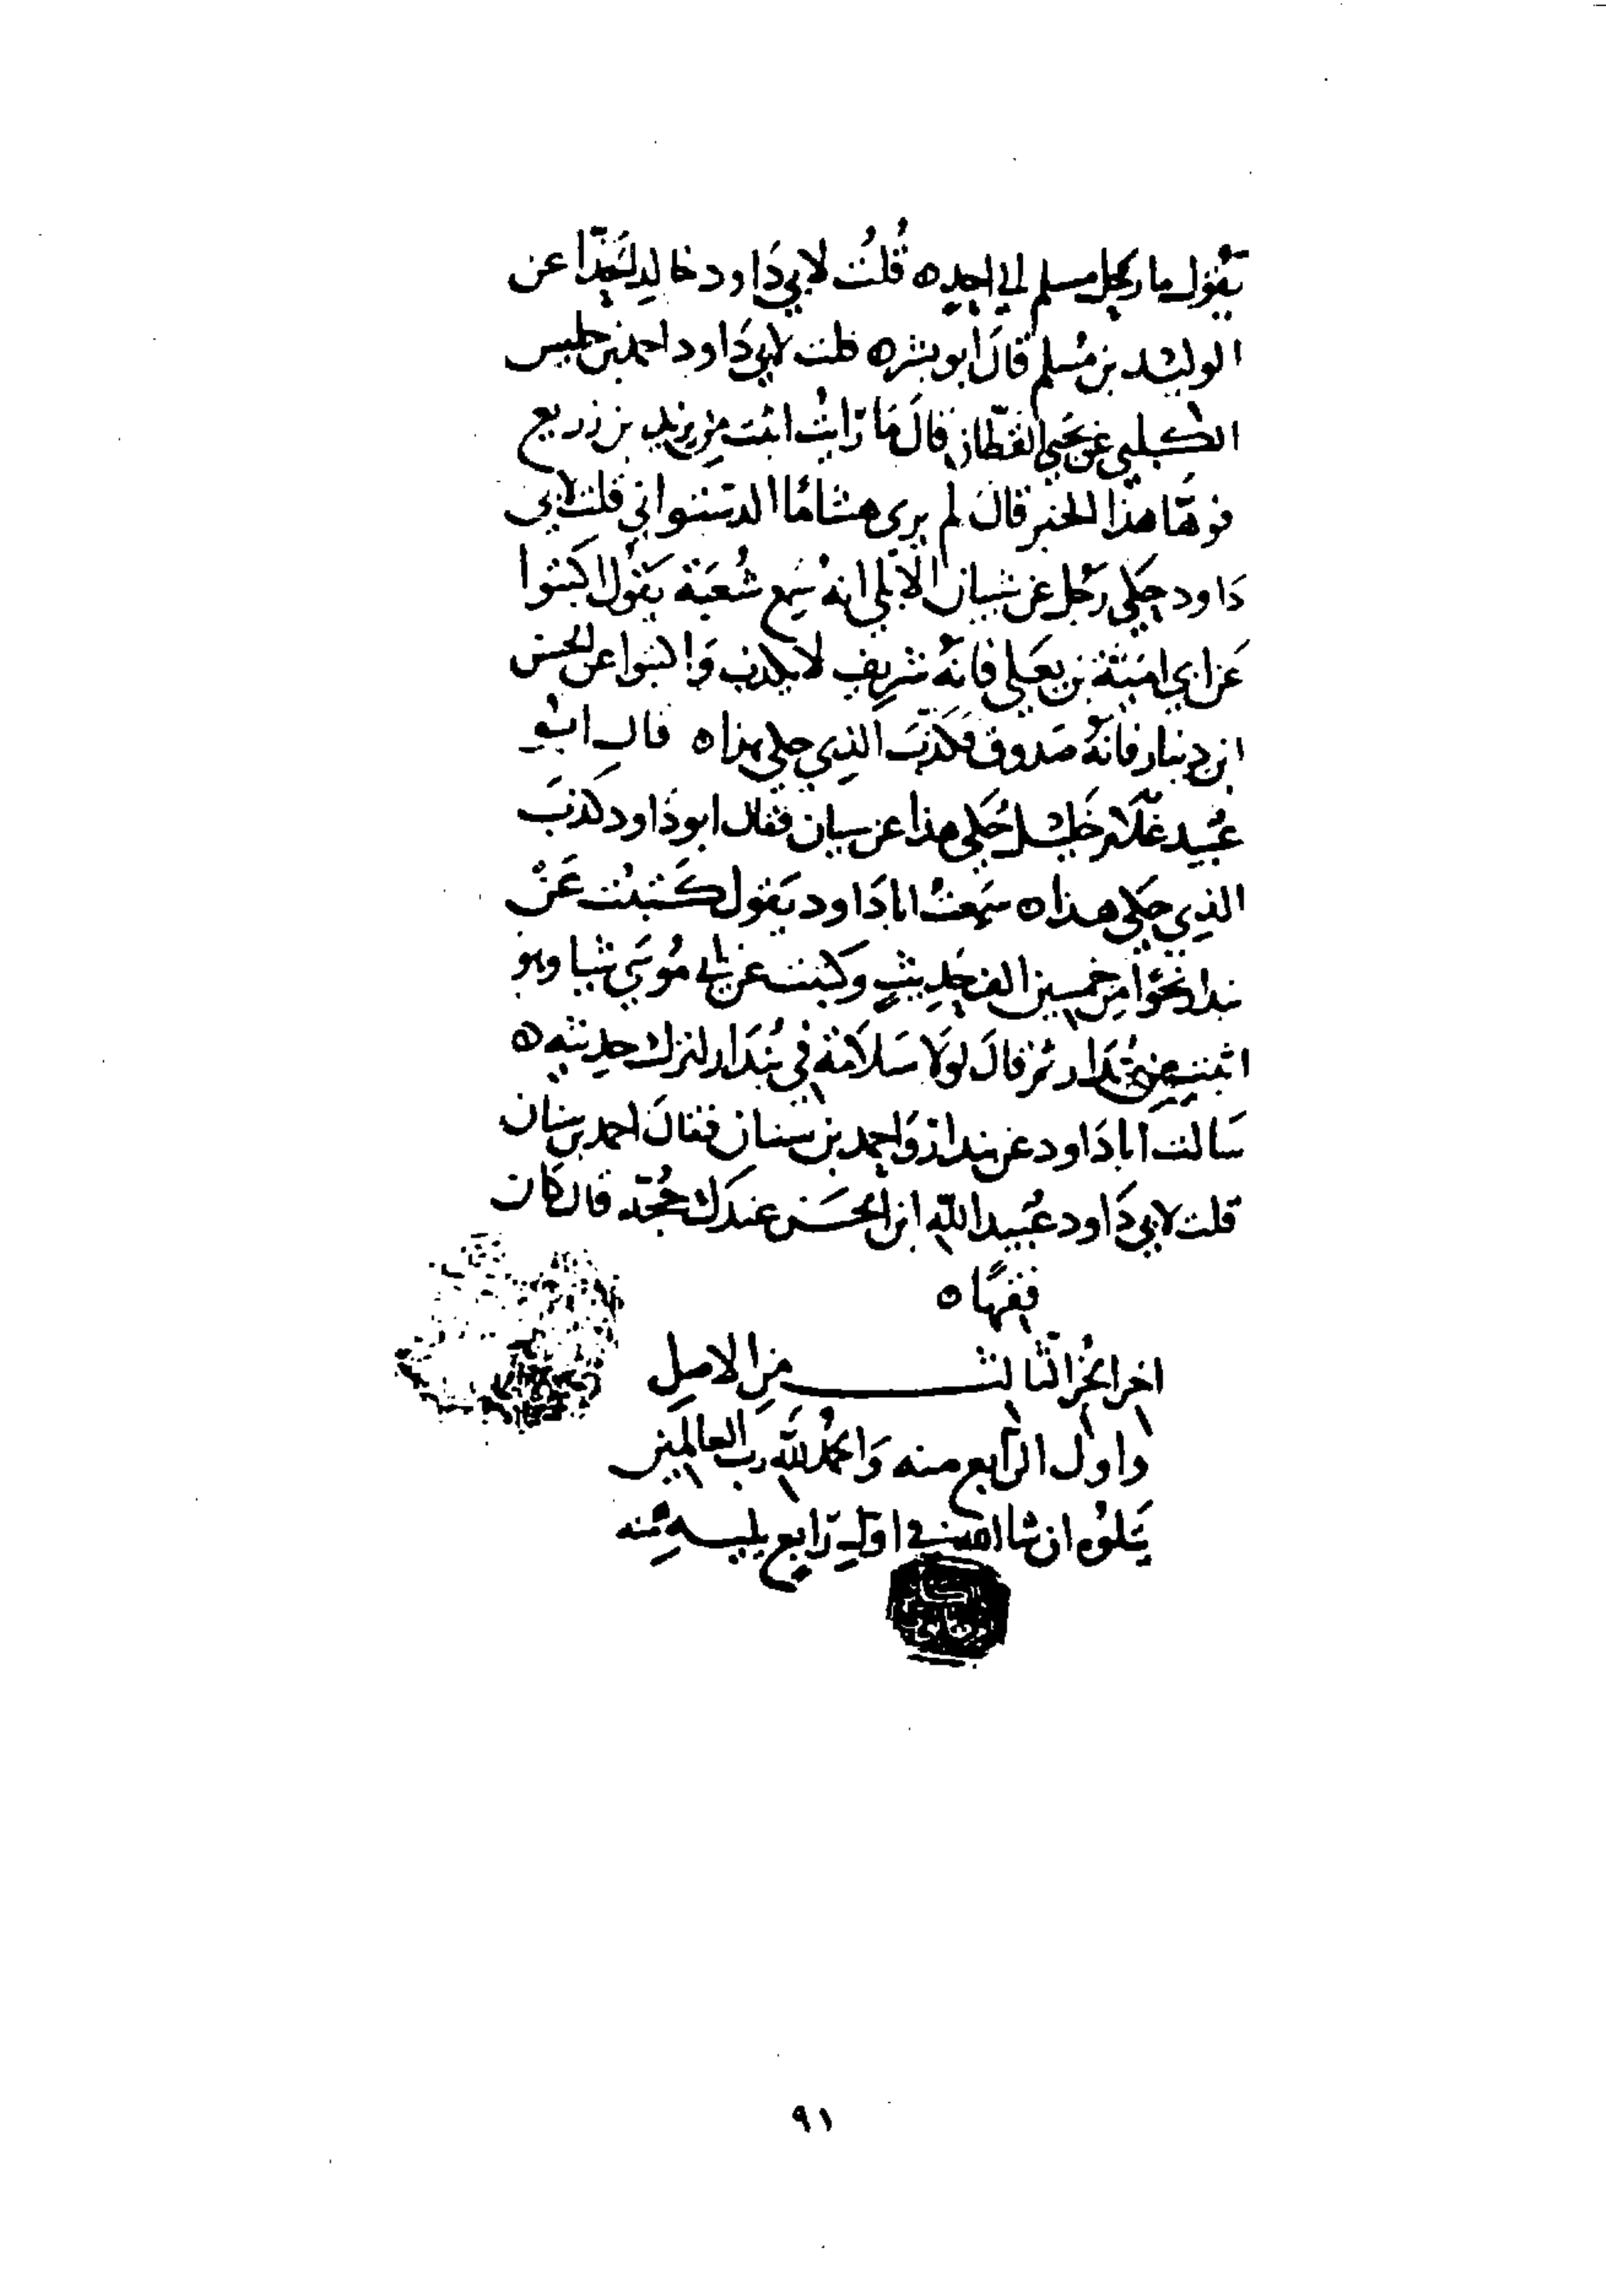 يقول ما رحل مسلم الى احد ه قُلتُ لابي دَاود خالد الحذا عن
الوليد بن مُسلم قالَ أبو بشر ه قلت لابي دَاود احمد بن
الكلبي عن يَحيى القطان قالَ مَا رَايتُ اثبت من يزيد بن زريع
فوهّا هذا الخبر قالَ لم يرى هشامًا الدستوائي قلت لابي
دَاود حكى رَجل عن شيبان الأبلي انهُ سَمع شُعبَة يَقول اكتبوا
عَن ابي اميّة بن يعلى فانّه شريف لا يكذب وَاكتبوا عن الحسن
ابن دينار فانّه صَدوق فكذّبَ الذي حكى هذا ه قال ابو
عُبيد غلام خليل حَكى هذا عن سيبان فقال ابو دَاود كذبَ
الذي حكى هذا ه سَمِعتُ ابا دَاود يَقول كتبتُ عَنْ
بندار نحوًا من خمسين الف حَديثٍ وكتبت عن ابي مُوسَى شيا وهو
اثبت من بُندار ثم قالَ لولَا سَلَامَة في بُندار لترك حديثه ه
سَالت ابا دَاود عن بندار وَاحمد بن سنان فقالَ احمد بن سنان
قلت لابي دَاود عُبيد الله ابن الحسَن عندك حُجّة قال كان
فقيهًا ه
اخر الجُز الثالث من الاصل
واول الرابع منه وَالحمدُ لله رب العالمين
يَتلوُه ان شا الله في اول رَابع يليه منه
٩١